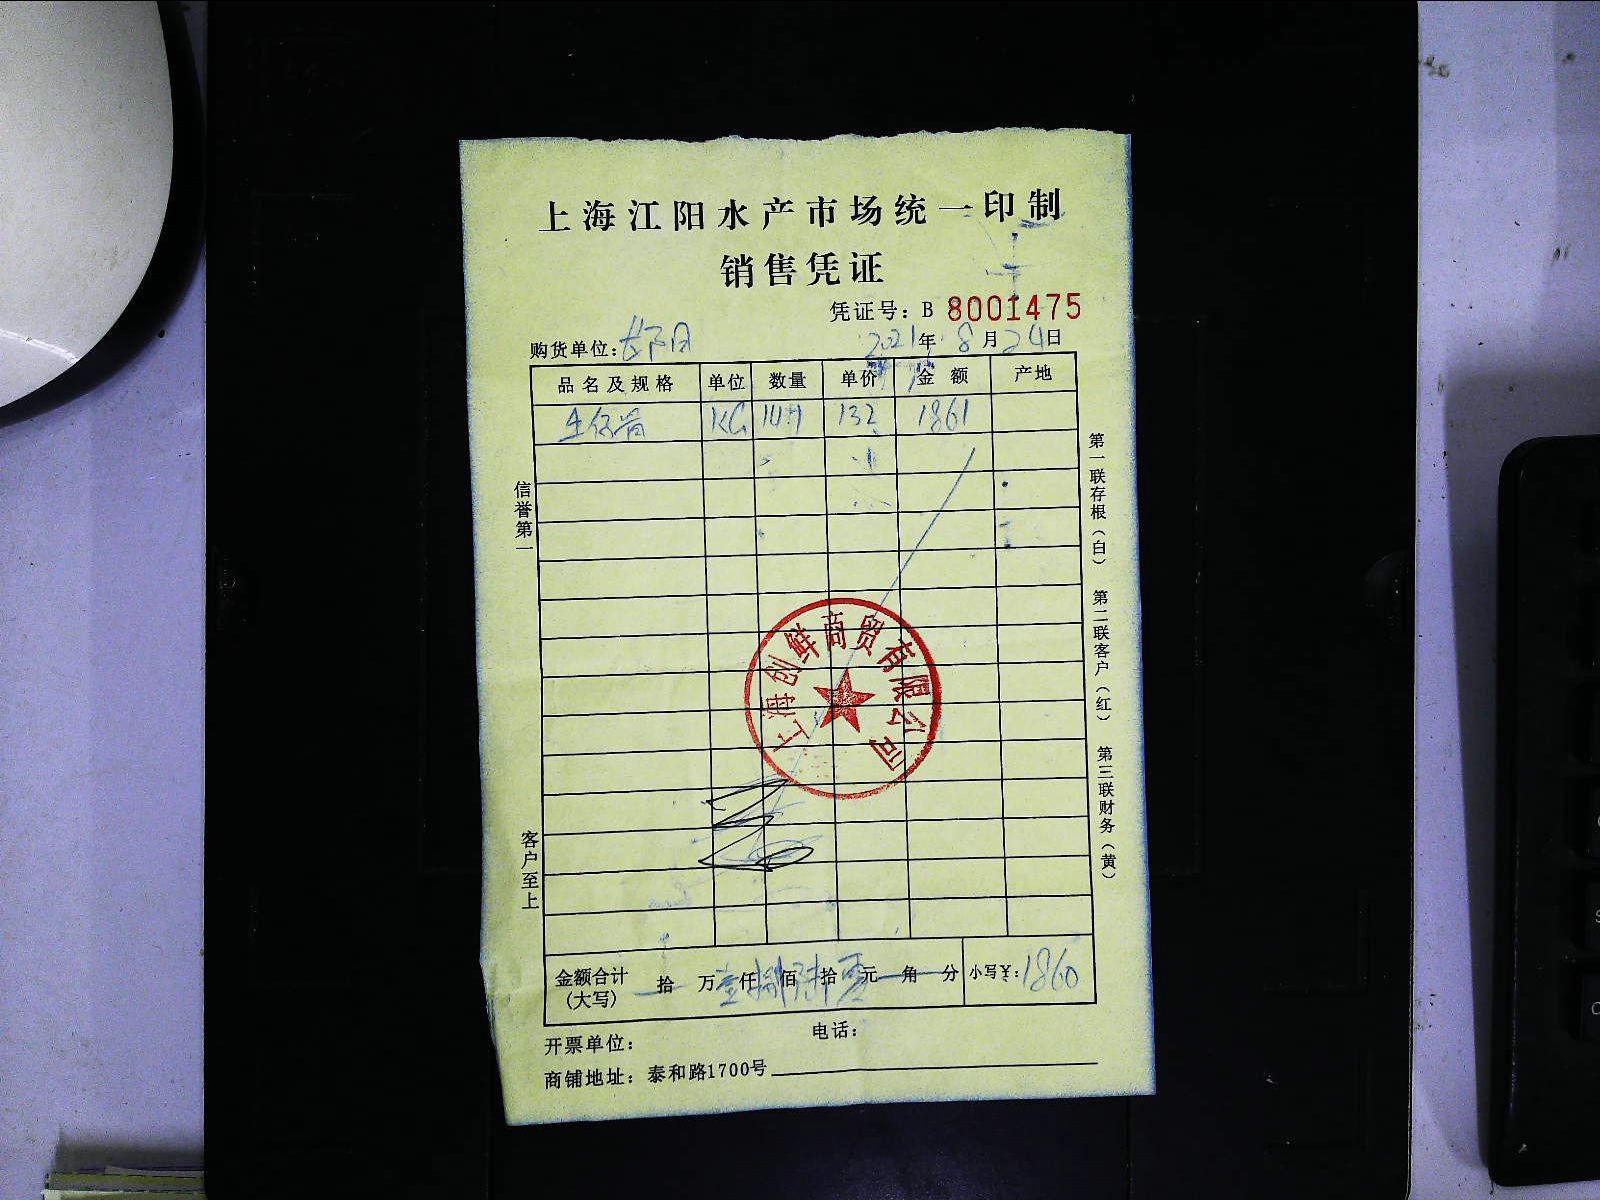 上海江阳水产市场统一印制
销售凭证
凭证号：B 8001475
购货单位： 2021年 8月24日
品名及规格 单位 数量 单价 金额 产地
KG 14.1 132 1861
信誉第一
客户至上
第一联存根（白） 第二联客户（红） 第三联财务（黄）
上海创鲜商贸有限公司
金额合计（大写） 拾 万壹仟捌佰陆拾零元 角 分 小写¥：1860
开票单位： 电话：
商铺地址：泰和路1700号